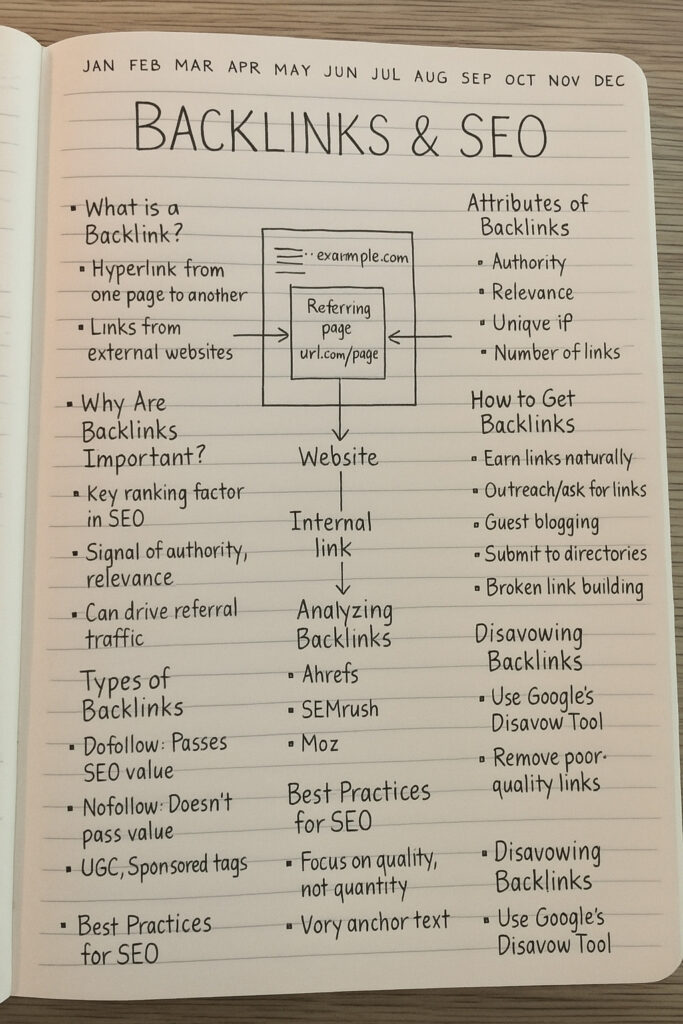 JAN FEB MAR APR MAY JUN JUL AUG SEP OCT NOV DEC
BACKLINKS & SEO
▪ What is a
Backlink?
▪ Hyperlink from
one page to another
▪ Links from
external websites
▪ Why Are
Backlinks
Important?
▪ Key ranking factor
in SEO
▪ Signal of authority,
relevance
▪ Can drive referral
traffic
Types of
Backlinks
▪ Dofollow: Passes
SEO value
▪ Nofollow: Doesn't
pass value
▪ UGC, Sponsored tags
▪ Best Practices
for SEO
exarmple.com
Referring
page
url.com/page
Website
Internal
link
Analyzing
Backlinks
▪ Ahrefs
▪ SEMrush
▪ Moz
Best Practices
for SEO
▪ Focus on quality,
not quantity
▪ Vory anchor text
Attributes of
Backlinks
▪ Authority
▪ Relevance
▪ Uniqve if
▪ Number of links
How to Get
Backlinks
▪ Earn links naturally
▪ Outreach/ask for links
▪ Guest blogging
▪ Submit to directories
▪ Broken link building
Disavowing
Backlinks
▪ Use Google's
Disavow Tool
▪ Remove poor-
quality links
▪ Disavowing
Backlinks
▪ Use Google's
Disavow Tool